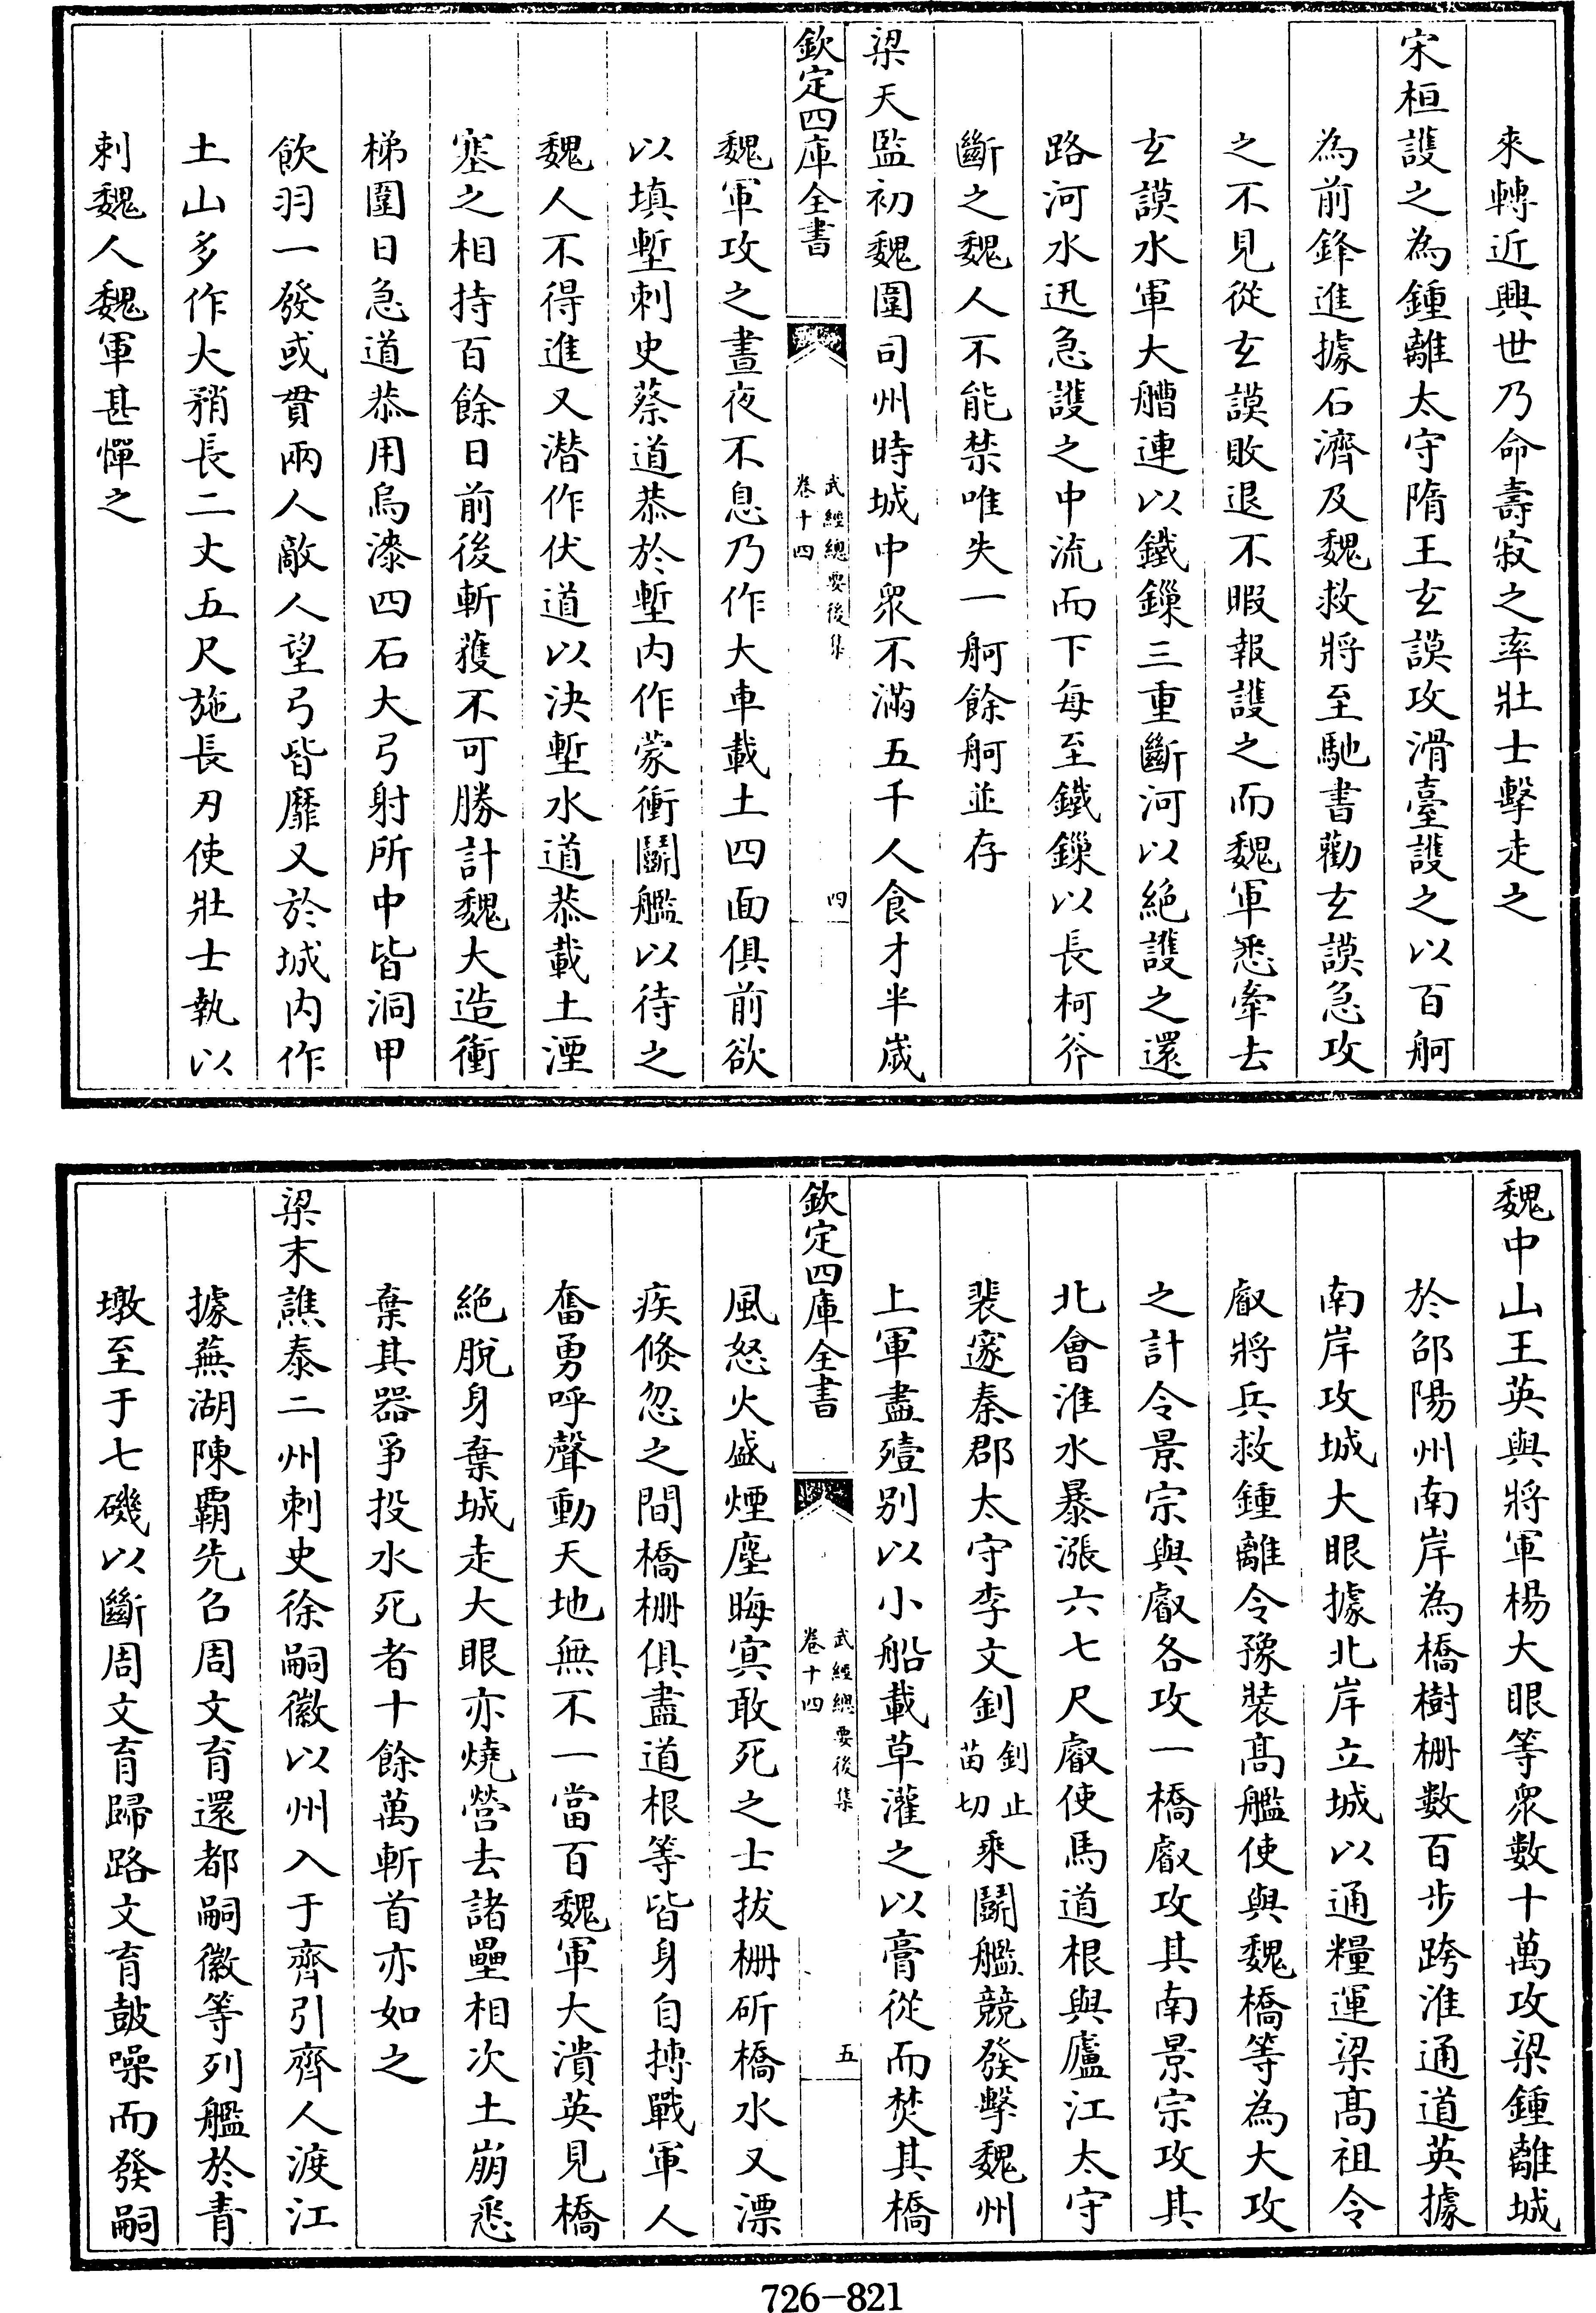 來轉近興世乃命壽寂之率壯士擊走之
宋桓護之為鍾離太守隋王玄謨攻滑臺護之以百舸
為前鋒進據石濟及魏救將至馳書勸玄謨急攻
之不見從玄謨敗退不暇報護之而魏軍悉牽去
玄謨水軍大艚連以鐵鏁三重斷河以絶護之還
路河水迅急護之中流而下每至鐵鏁以長柯斧
斷之魏人不能禁唯失一舸餘舸並存
梁天監初魏圍司州時城中衆不滿五千人食才半歲
欽定四庫全書
武經總要後集
卷十四
四
魏軍攻之晝夜不息乃作大車載土四面俱前欲
以填塹刺史蔡道恭於塹内作蒙衝鬬艦以待之
魏人不得進又潜作伏道以決塹水道恭載土湮
塞之相持百餘日前後斬獲不可勝計魏大造衝
梯圍日急道恭用烏漆四石大弓射所中皆洞甲
飲羽一發或貫兩人敵人望弓皆靡又於城内作
土山多作大矟長二丈五尺施長刃使壯士執以
刺魏人魏軍甚憚之
魏中山王英與將軍楊大眼等衆數十萬攻梁鍾離城
於邵陽州南岸為橋樹栅數百步跨淮通道英據
南岸攻城大眼據北岸立城以通糧運梁髙祖令
叡將兵救鍾離令豫裝髙艦使與魏橋等為大攻
之計令景宗與叡各攻一橋叡攻其南景宗攻其
北會淮水暴漲六七尺叡使馬道根與廬江太守
裴邃秦郡太守李文釗釗止苗切乘鬬艦競發擊魏州
上軍盡殪别以小船載草灌之以膏從而焚其橋
欽定四庫全書
武經總要後集
卷十四
五
風怒火盛煙塵晦㝠敢死之士拔栅斫橋水又漂
疾倐忽之間橋栅俱盡道根等皆身自搏戰軍人
奮勇呼聲動天地無不一當百魏軍大潰英見橋
絶脫身棄城走大眼亦燒營去諸壘相次土崩悉
棄其器爭投水死者十餘萬斬首亦如之
梁末譙泰二州刺史徐嗣徽以州入于齊引齊人渡江
據蕪湖陳覇先召周文育還都嗣徽等列艦於青
墩至于七磯以斷周文育歸路文育鼓噪而發嗣
726-821